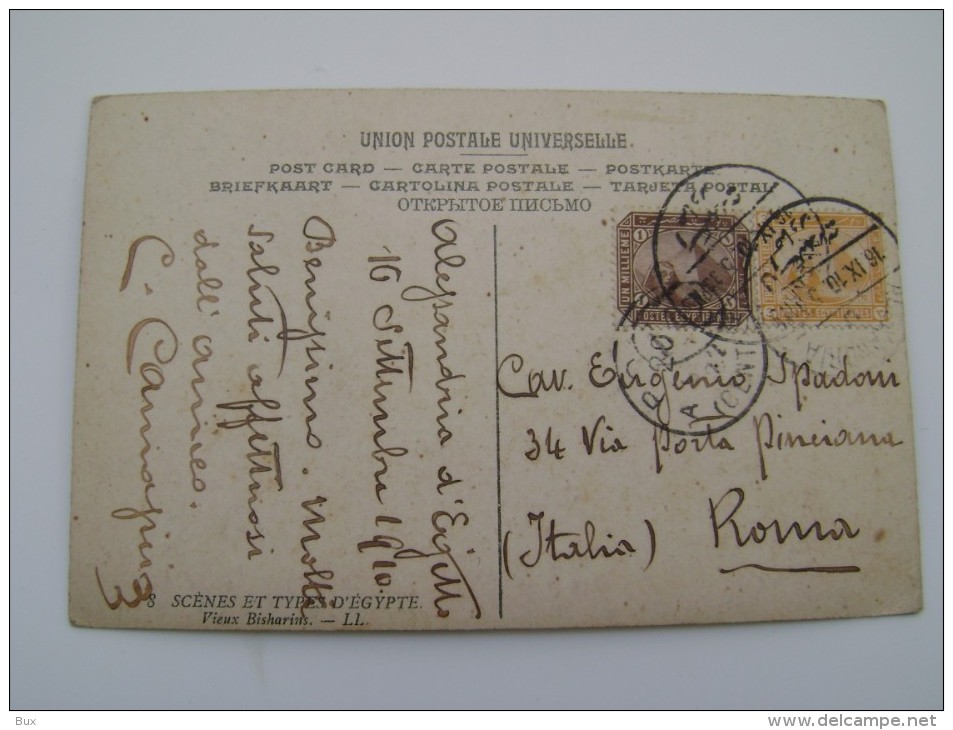 UNION POSTALE UNIVERSELLE.
POST CARD — CARTE POSTALE — POSTKARTE
BRIEFKAART — CARTOLINA POSTALE — TARJETA POSTAL
ОТКРЫТОЕ ПИСЬМО
Alessandria d'Egitto
16 Settembre 1910.
Benissimo. Molti
saluti affettuosi
dall'amico.
C.
UN MILLIEME
POSTES EGYPTIENNES
16 IX 10
ROMA
CENTRO
Cav. Eugenio Spadoni
34 Via Porta Pinciana
Roma
(Italia)
8 SCÈNES ET TYPES D'ÉGYPTE.
Vieux Bisharins. — LL.
Bux
www.delcampe.net